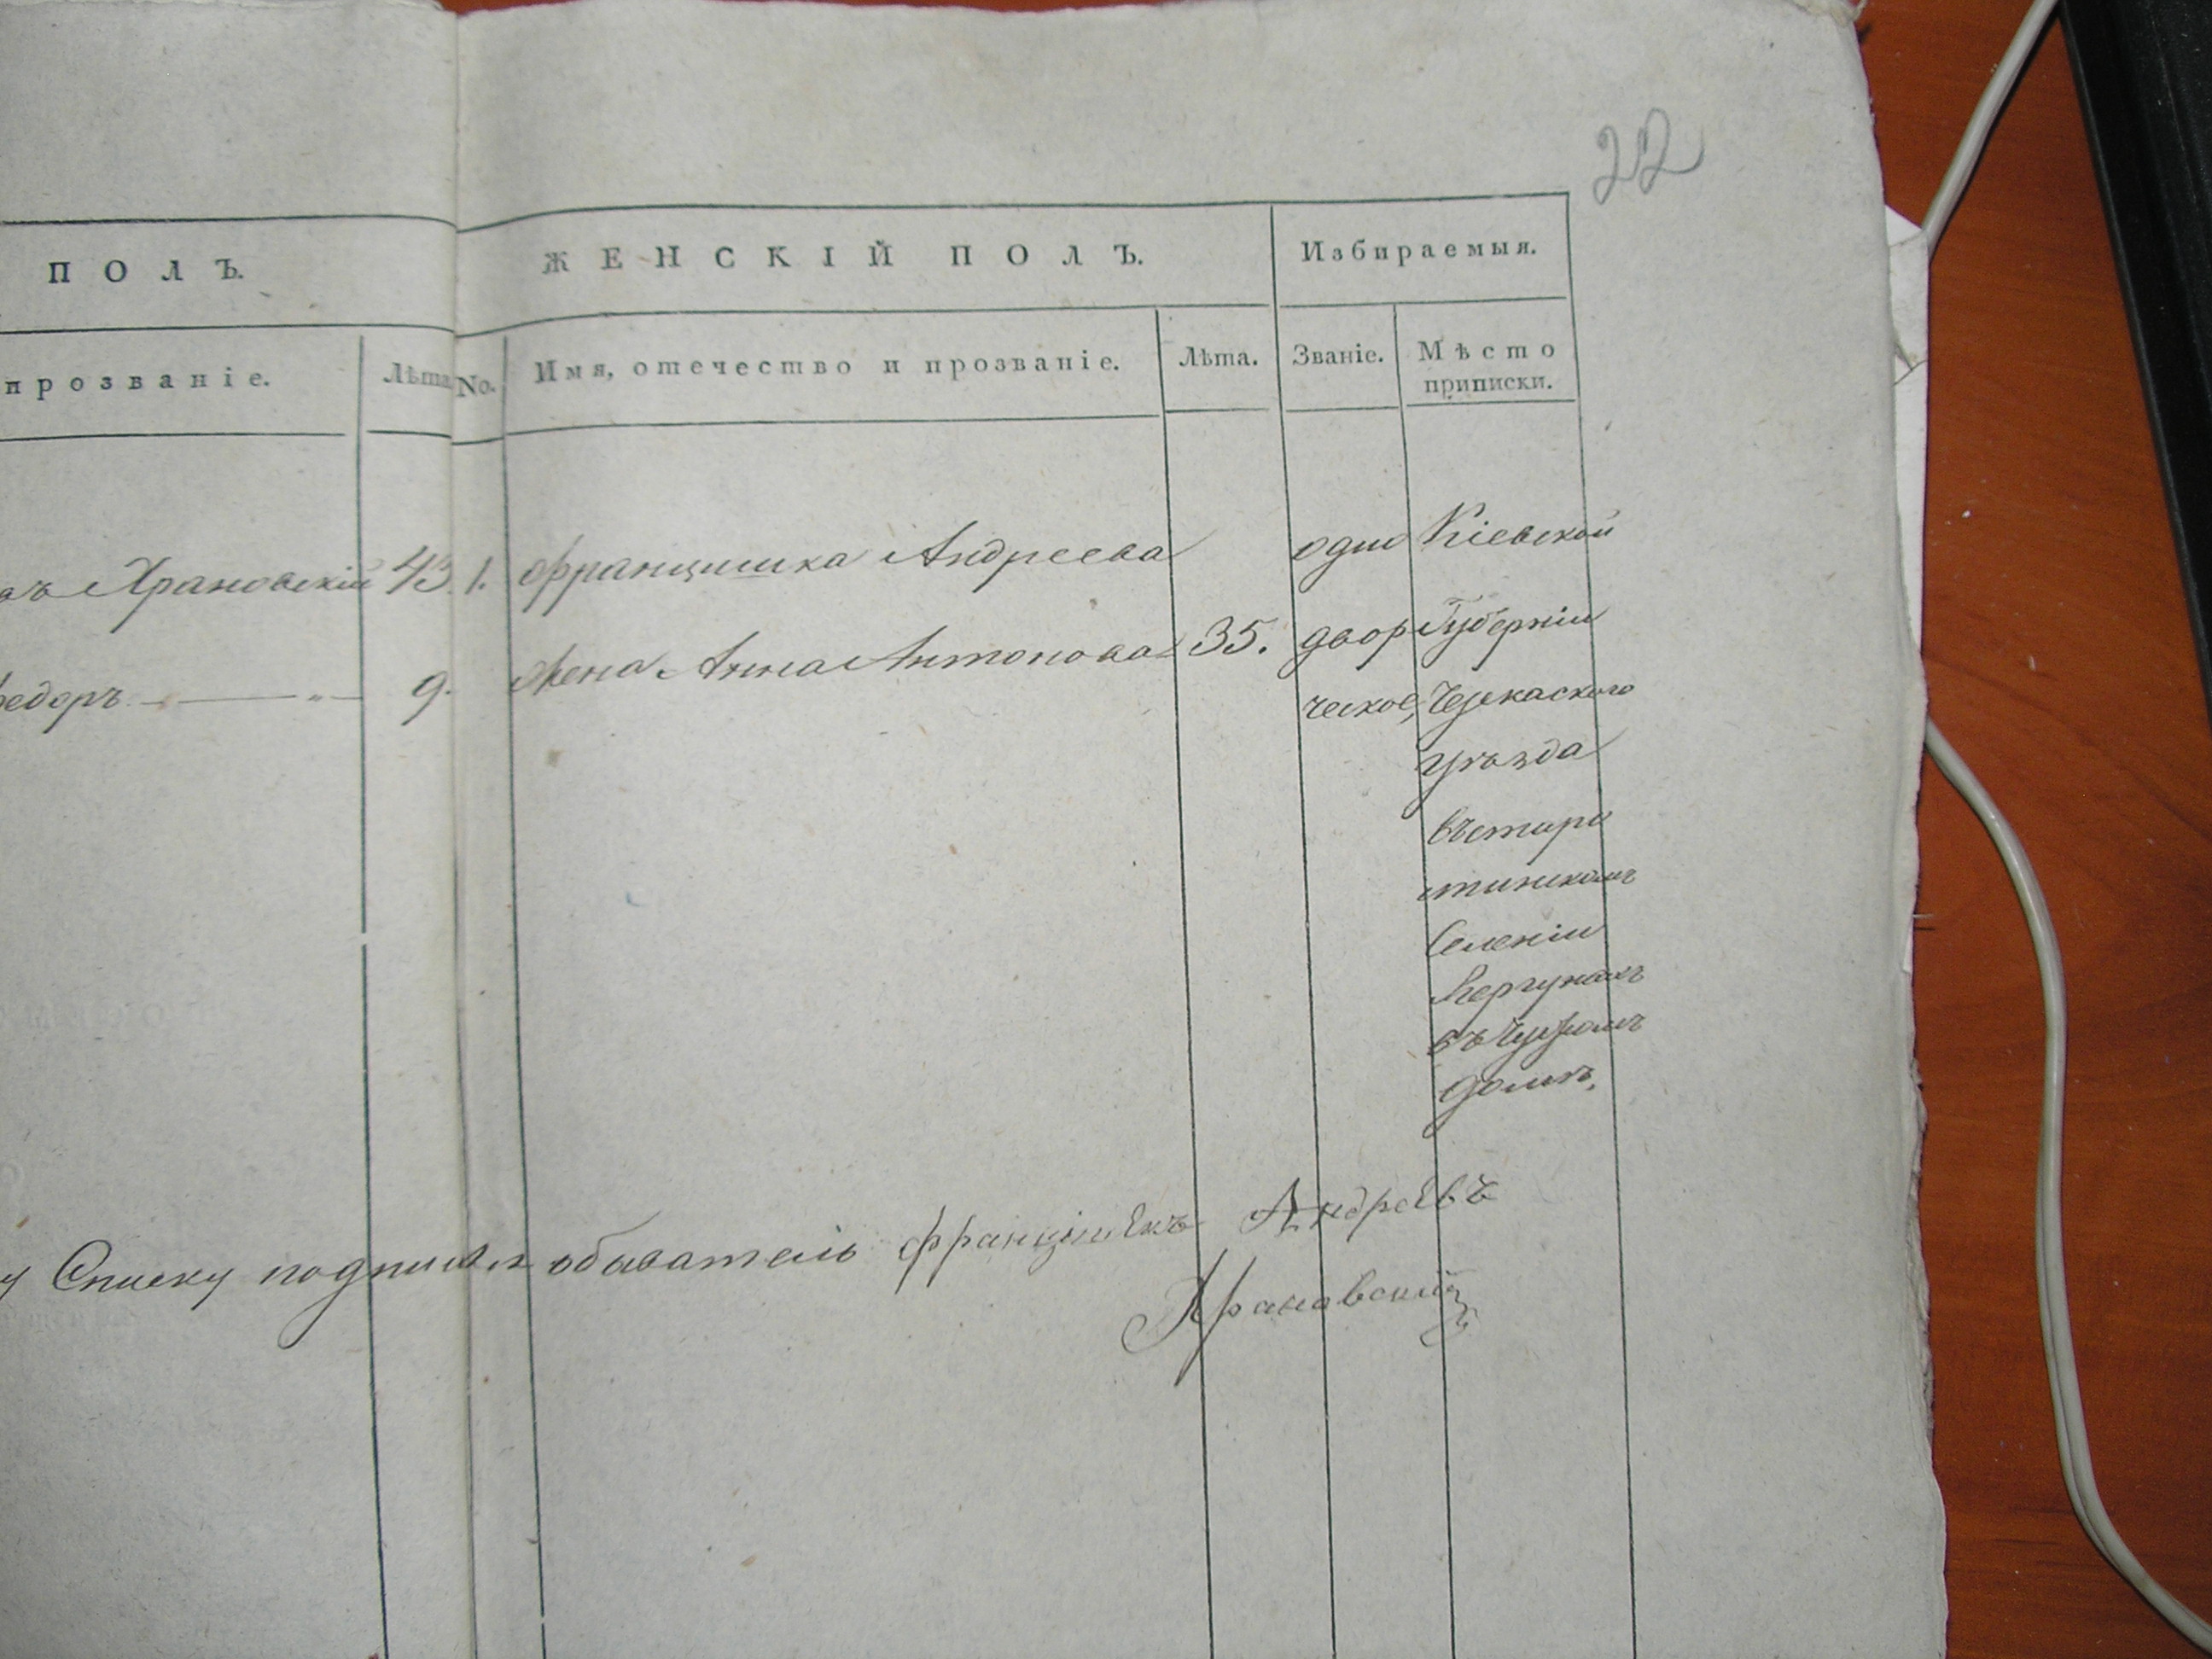 22
ПОЛЪ. ЖЕНСКІЙ ПОЛЪ. Избираемыя.
прозваніе. Лѣта No. Имя, отечество и прозваніе. Лѣта. Званіе. Мѣсто
приписки.
Храновскій 43. 1. Францишка Андреева одно Кіевской
жена Анна Антонова 35. двор Губерніи
Федоръ — " — 9. ческое, Черкаского
уѣзда
въ старо
стинскомъ
Селеніи
Мергунахъ
въ чужомъ
домѣ.
у Списку подписалъ обыватель Францішекъ Андреевъ
Храновский